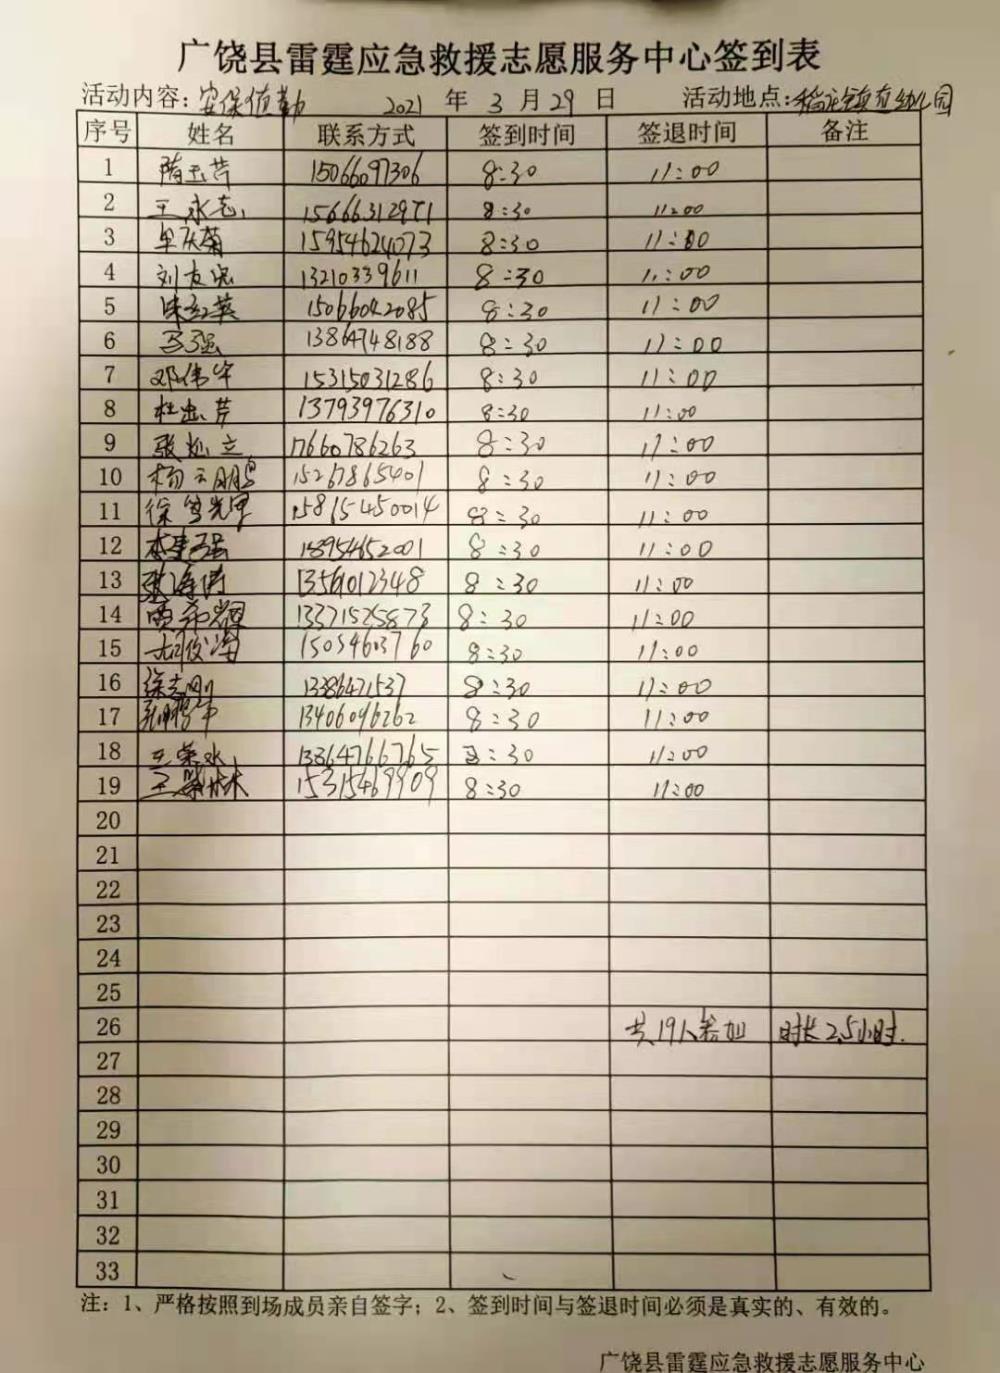 广饶县雷霆应急救援志愿服务中心签到表
活动内容:安保值勤 2021 年 3 月 29 日 活动地点:稻庄镇 幼儿园
序号 姓名 联系方式 签到时间 签退时间 备注
1 隋玉芹 15066097306 8:30 11:00
2 王永志 8:30 11:00
3 15954624073 8:30 11:00
4 刘友忠 13210339611 8:30 11:00
5 朱红英 15066042085 8:30 11:00
6 马强 13864748188 8:30 11:00
7 邓伟华 15315031286 8:30 11:00
8 13793976310 8:30 11:00
9 17660786263 8:30 11:00
10 杨云鹏 15267865401 8:30 11:00
11 15815450014 8:30 11:00
12 李建强 18954652001 8:30 11:00
13 张海涛 13561012348 8:30 11:00
14 贾希耀 13371525873 8:30 11:00
15 15054603760 8:30 11:00
16 徐志刚 13386471537 8:30 11:00
17 13406096262 8:30 11:00
18 王荣水 13864766765 8:30 11:00
19 15315469909 8:30 11:00
20
21
22
23
24
25
26 共19人参加 时长2.5小时.
27
28
29
30
31
32
33
注:1、严格按照到场成员亲自签字;2、签到时间与签退时间必须是真实的、有效的。
广饶县雷霆应急救援志愿服务中心